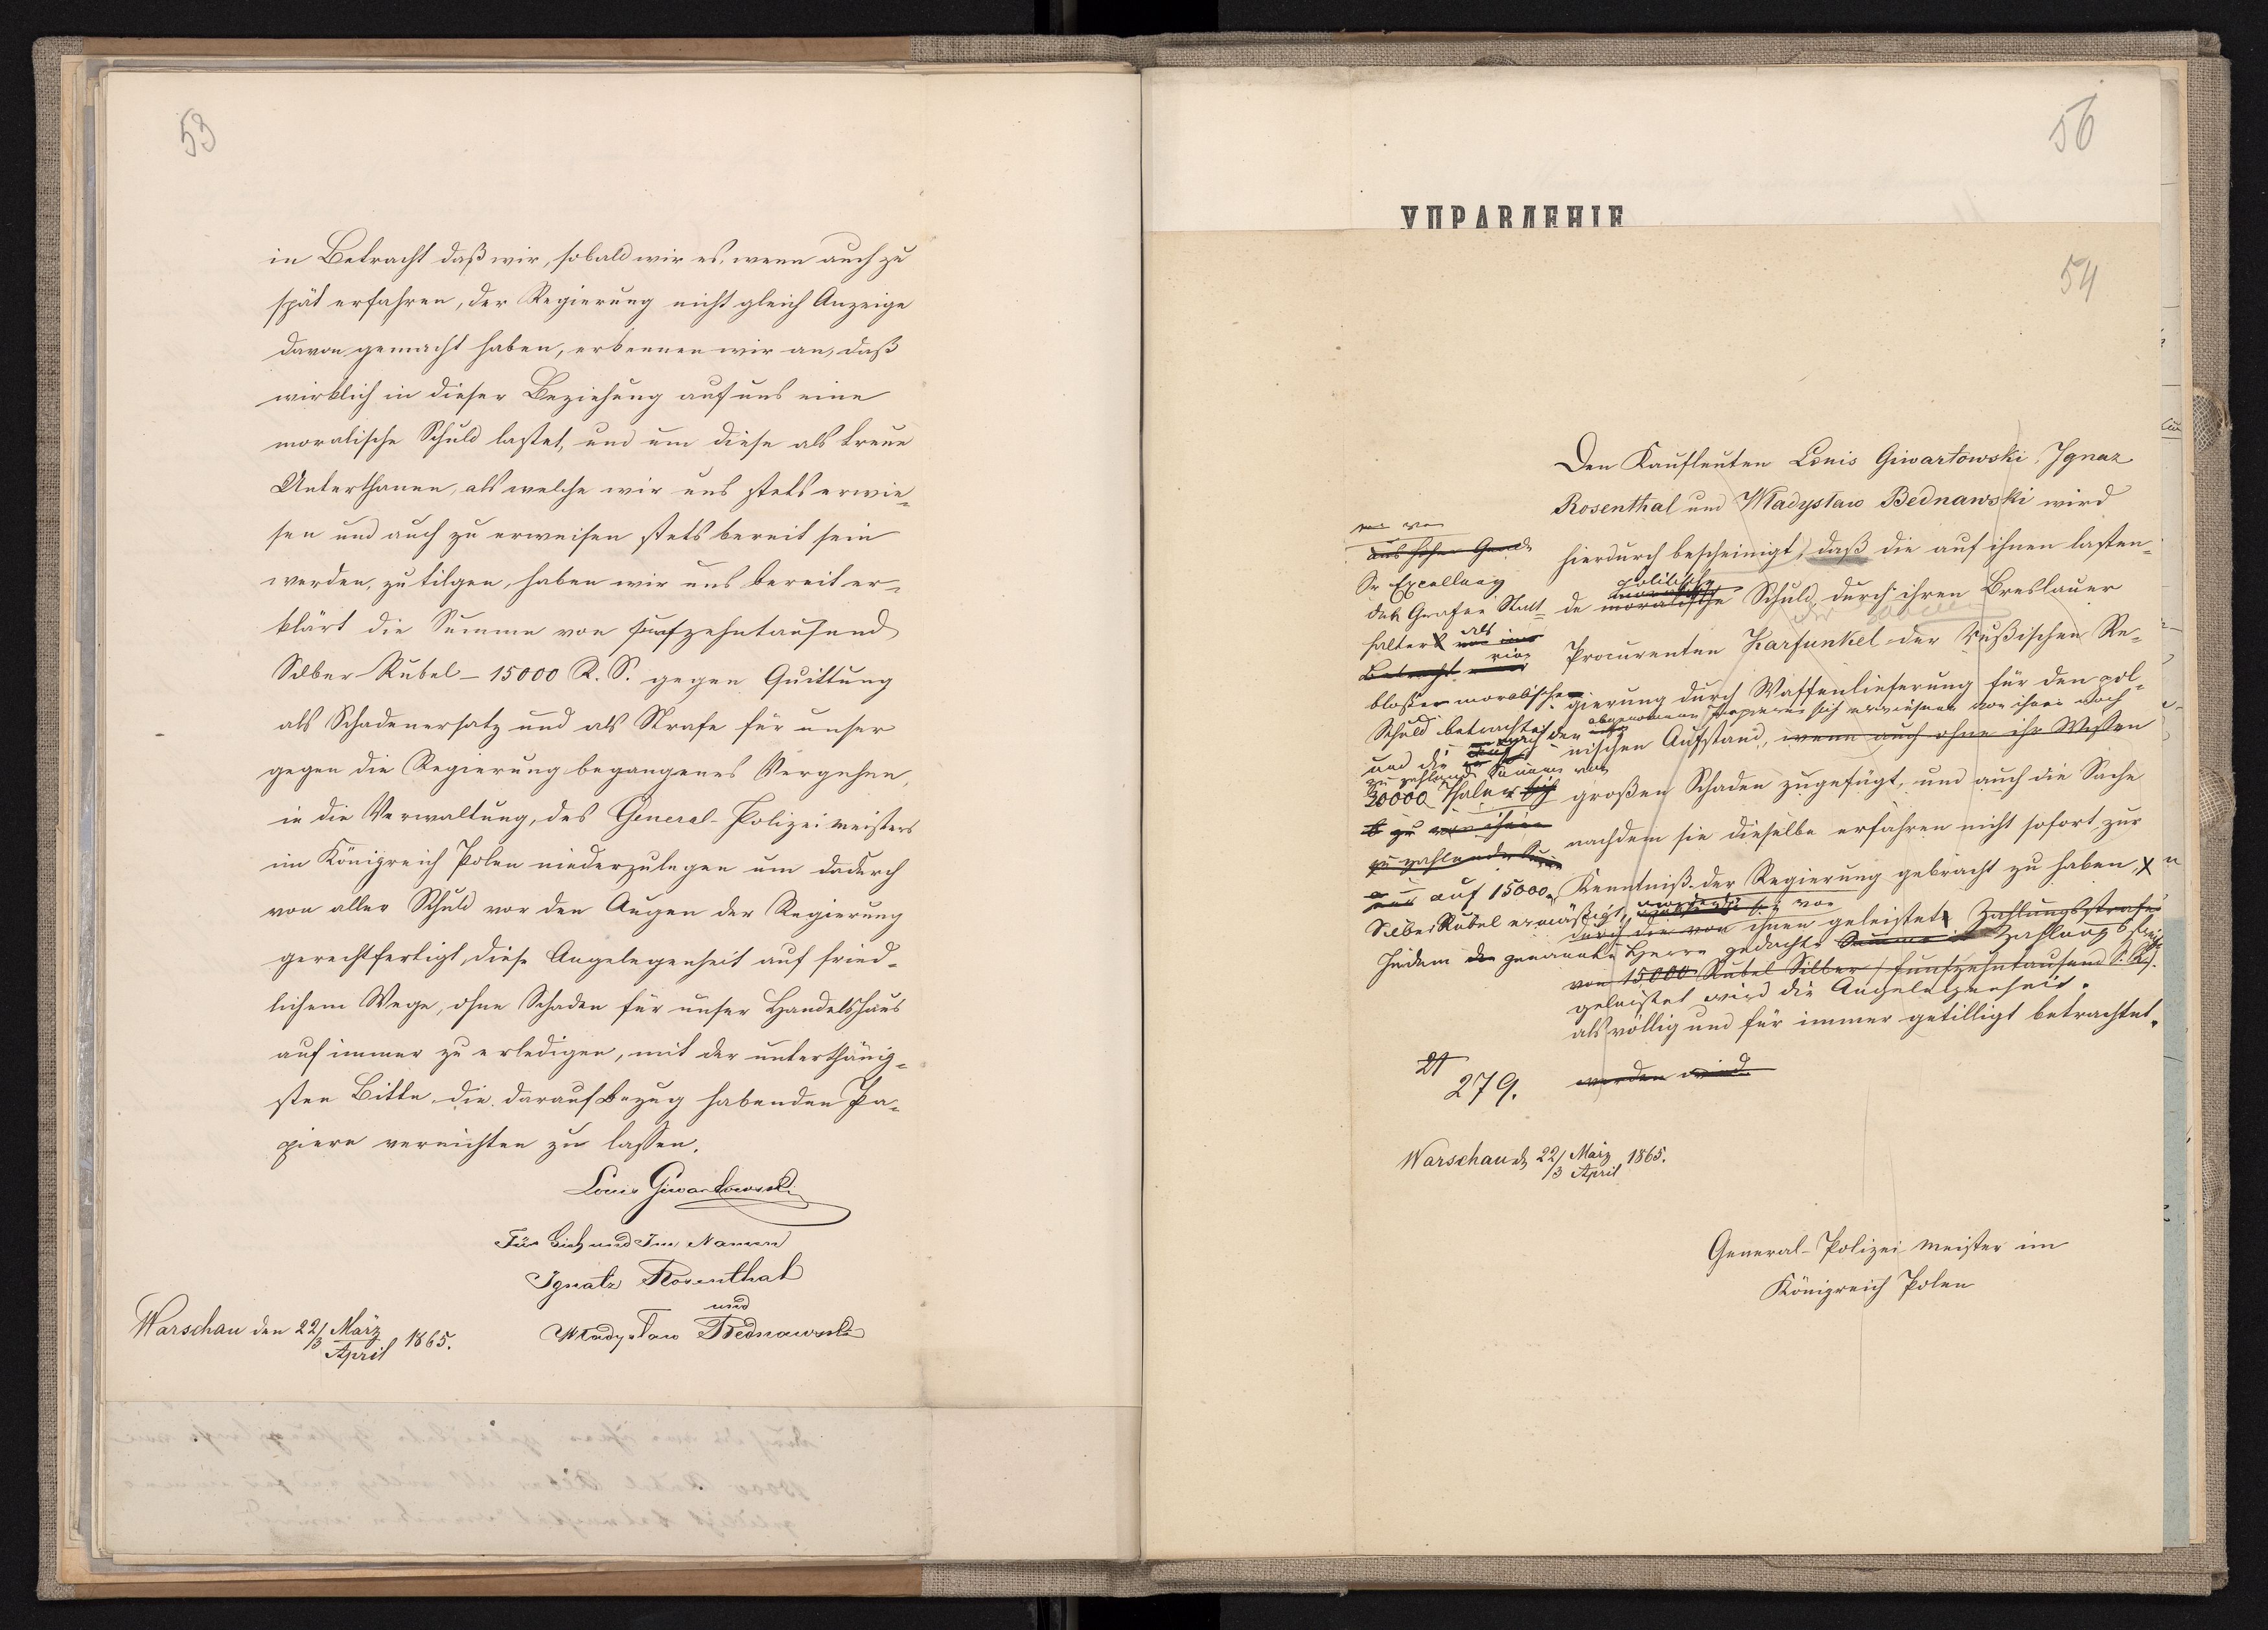 53
in Betracht daß wir, sobald wir es, wenn auch zu
spät erfahren, der Regierung nicht gleich Anzeige
davon gemacht haben, erkennen wir an, daß
wirklich in dieser Beziehung auf uns eine
moralische Schuld lastet, und um diese als treue
Unterthanen, als welche wir uns stets erwie-
sen und auch zu erweisen stets bereit sein
werden, zu tilgen, haben wir uns bereit er-
klärt die Summe von funfzehntausend
Silber-Rubel - 15000 R. S. gegen Quittung
als Schadenersatz und als Strafe für unser
gegen die Regierung begangenes Vergehen,
in die Verwaltung, des General-Polizeimeisters
im Königreich Polen niederzulegen um dadurch
von aller Schuld vor den Augen der Regierung
gerechtfertigt, diese Angelegenheit auf fried-
lichem Wege, ohne Schaden für unser Handelshaus
auf immer zu erledigen, mit der unterthänig-
sten Bitte, die darauf Bezug habenden Pa-
piere vernichten zu lassen.
Louis Giwartowski
Für Sich und Im Namen
Ignatz Rosenthal
und
Władysław Bednawski
Warschau den 22/3 März April 1865.
56
УПРАВЛЕНІЕ
54
Den Kaufleuten Louis Giwartowski, Ignaz
Rosenthal und Władysław Bednawski wird
hierdurch bescheinigt, daß die auf ihnen lasten-
politische
de moralische Schuld durch ihren Breslauer
Procurenten Karfunkel der Rußischen Re-
gierung durch Waffenlieferung für den pol-
nischen Aufstand, wenn auch ohne ihr Wissen
großen Schaden zugefügt, und auch die Sache
nachdem sie dieselbe erfahren nicht sofort zur
Kenntniß der Regierung gebracht zu haben,
durch die von ihnen geleistete Zahlungsstrafe
von 15,000 Rubel Silber / funfzehntausend S. R.
geleistet wird die Angelegenheit
als völlig und für immer getilligt betrachtet
werden wird.
Sr Excellenz
des Grafen Statt-
halters als
bloßer moralischer
Schuld betrachtet
und die
zu zahlende Summe von
30000 Thaler
zu zahlende
auf 15000
Silber Rubel ermäßigt,
Indem genannte Herren gedachte
279.
Warschau d. 22/3 März April 1865.
General-Polizei meister im
Königreich Polen